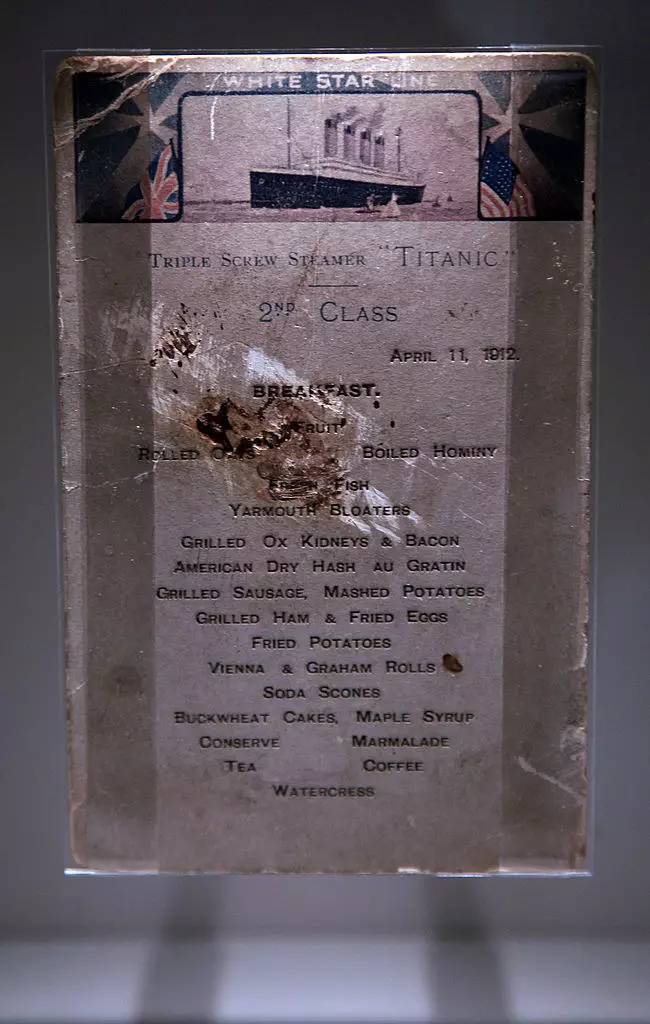 WHITE STAR LINE
TRIPLE SCREW STEAMER "TITANIC"
2ND CLASS
APRIL 11, 1912.
BREAKFAST.
FRUIT
ROLLED OATS BOILED HOMINY
FRESH FISH
YARMOUTH BLOATERS
GRILLED OX KIDNEYS & BACON
AMERICAN DRY HASH AU GRATIN
GRILLED SAUSAGE, MASHED POTATOES
GRILLED HAM & FRIED EGGS
FRIED POTATOES
VIENNA & GRAHAM ROLLS
SODA SCONES
BUCKWHEAT CAKES, MAPLE SYRUP
CONSERVE MARMALADE
TEA COFFEE
WATERCRESS